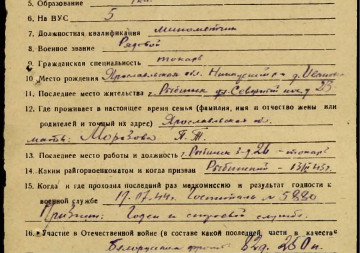 5. Образование
6. На ВУС 5
7. Должностная квалификация минометчик
8. Военное звание Рядовой
9. Гражданская специальность токарь
10. Место рождения Ярославская обл. д. Иваново
11. Последнее место жительства г. Рыбинск ул. 23
12. Где проживает в настоящее время семья (фамилия, имя и отчество жены или
родителей и точный их адрес) Ярославская обл.
мать: Морозова
13. Последнее место работы и должность г. Рыбинск 26 - токарь
14. Каким райгорвоенкоматом и когда призван Рыбинский -
15. Когда и где проходил последний раз медкомиссию и результат годности к
военной службе 19.07.44г. Госпиталь № 5880
Признан: Годен к строевой службе.
16. Участие в Отечественной войне (в составе какой последней части, в качест
Белорусский фронт 82 д. 250 п.